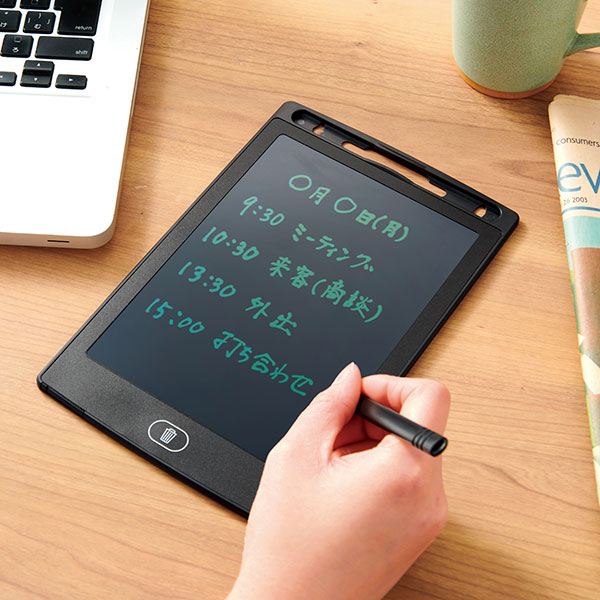 return
shift
consumers
ev
26 2003
〇月〇日(月)
9:30 ミーティング
10:30 来客(商談)
13:30 外出
15:00 打ち合わせ